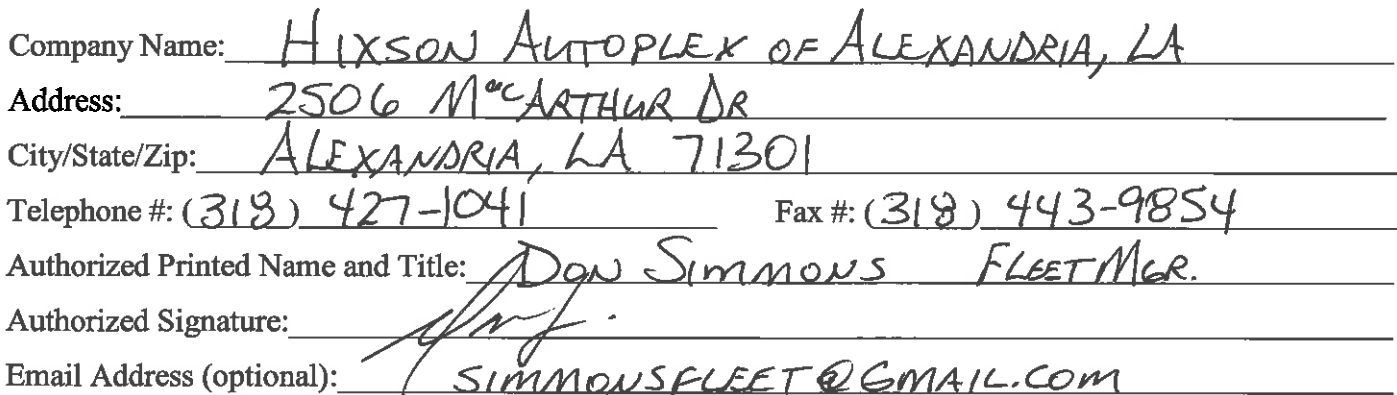 Company Name: HIXSON AUTOPLEX OF ALEXANDRIA, LA
Address: 2506 MacARTHUR DR
City/State/Zip: ALEXANDRIA, LA 71301
Telephone #: (318) 427-1041 Fax #: (318) 443-9854
Authorized Printed Name and Title: DON SIMMONS FLEET MGR.
Authorized Signature:
Email Address (optional): SIMMONSFLEET@GMAIL.COM